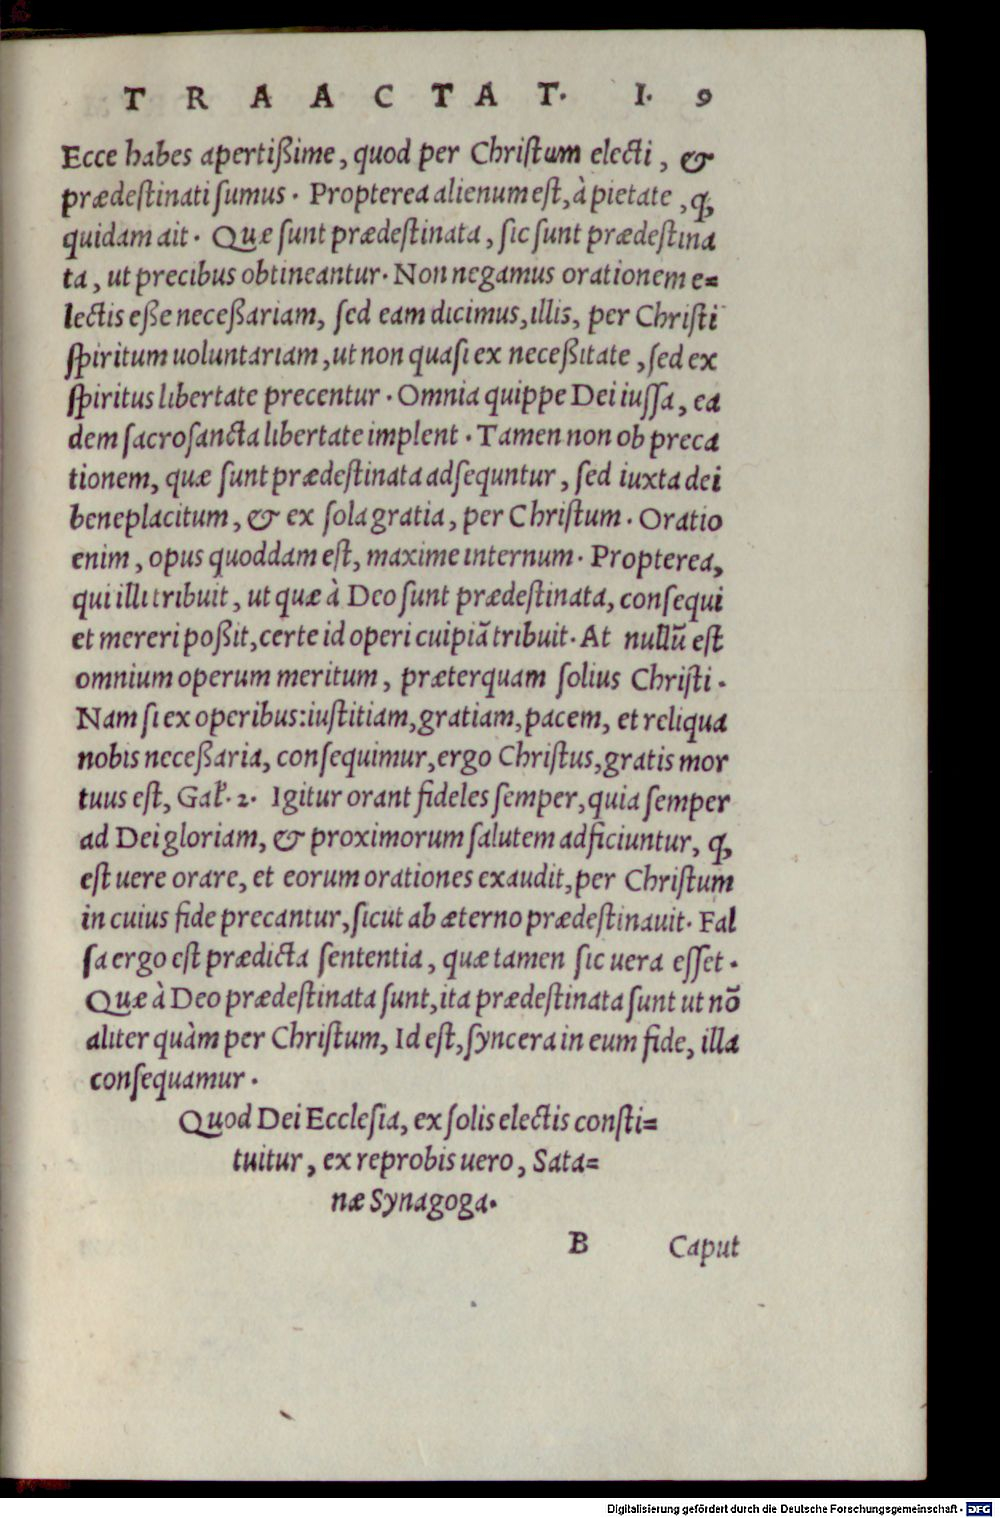 TRAACTAT. I. 9
Ecce habes apertißime, quod per Christum electi, &
prædestinati sumus. Propterea alienum est, à pietate, q̃,
quidam ait. Quæ sunt prædestinata, sic sunt prædestina
ta, ut precibus obtineantur. Non negamus orationem e=
lectis eße neceßariam, sed eam dicimus, illis, per Christi
spiritum uoluntariam, ut non quasi ex neceßitate, sed ex
spiritus libertate precentur. Omnia quippe Dei iussa, ea
dem sacrosancta libertate implent. Tamen non ob preca
tionem, quæ sunt prædestinata adsequntur, sed iuxta dei
beneplacitum, & ex sola gratia, per Christum. Oratio
enim, opus quoddam est, maxime internum. Propterea,
qui illi tribuit, ut quæ à Deo sunt prædestinata, consequi
et mereri poßit, certe id operi cuipiã tribuit. At nullũ est
omnium operum meritum, præterquam solius Christi.
Nam si ex operibus: iustitiam, gratiam, pacem, et reliqua
nobis neceßaria, consequimur, ergo Christus, gratis mor
tuus est, Gal. 2. Igitur orant fideles semper, quia semper
ad Dei gloriam, & proximorum salutem adficiuntur, q̃,
est uere orare, et eorum orationes exaudit, per Christum
in cuius fide precantur, sicut ab æterno prædestinauit. Fal
sa ergo est prædicta sententia, quæ tamen sic uera esset.
Quæ à Deo prædestinata sunt, ita prædestinata sunt ut nõ
aliter quàm per Christum, Id est, syncera in eum fide, illa
consequamur.
Quod Dei Ecclesia, ex solis electis consti=
tuitur, ex reprobis uero, Sata=
næ Synagoga.
B Caput
Digitalisierung gefördert durch die Deutsche Forschungsgemeinschaft - DFG